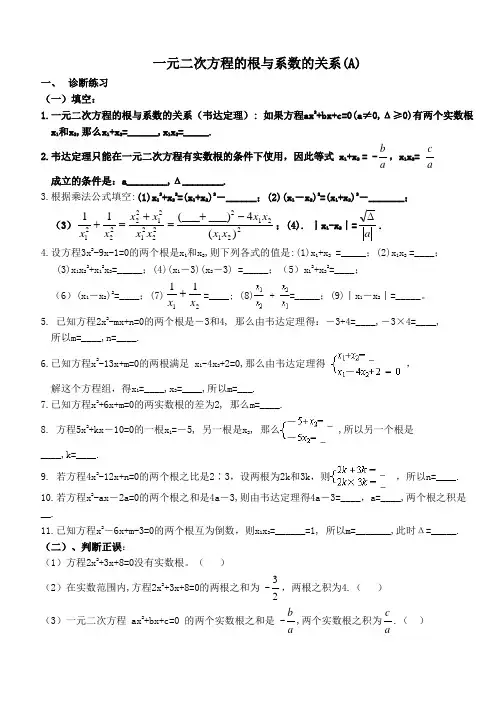 一元二次方程的根与系数的关系(A)
一、 诊断练习
（一）填空:
1.一元二次方程的根与系数的关系（韦达定理）: 如果方程ax²+bx+c=0(a≠0,Δ≥0)有两个实数根
x₁和x₂,那么x₁+x₂=______,x₁x₂=_____.
2.韦达定理只能在一元二次方程有实数根的条件下使用，因此等式 x₁+x₂ = -b/a, x₁x₂= c/a
成立的条件是：a________,Δ________.
3.根据乘法公式填空:(1)x₁²+x₂²=(x₁+x₂)²－______；(2)(x₁－x₂)²=(x₁+x₂)²－_______；
（3）1/x₁²+1/x₂²=(x₂²+x₁²)/(x₁²x₂²)=((___+___)²－4x₁x₂)/(x₁x₂)²；(4). |x₁-x₂|=√Δ/|a|.
4.设方程3x²-9x-1=0的两个根是x₁和x₂,则下列各式的值是:(1)x₁+x₂ =_____；(2)x₁x₂ =____；
(3)x₁x₂²+x₁²x₂=_____；(4)(x₁－3)(x₂－3) =_____；（5）x₁²+x₂²=____；
（6）(x₁－x₂)²=____；(7)1/x₁+1/x₂=____；(8)x₁/x₂ + x₂/x₁=_____；(9)|x₁－x₂|=_____。
5. 已知方程2x²-mx+n=0的两个根是－3和4, 那么由韦达定理得：－3+4=____,－3×4=____,
所以m=____,n=____.
6.已知方程x²-13x+m=0的两根满足 x₁-4x₂+2=0,那么由韦达定理得 {x₁+x₂=_ x₁－4x₂+2 = 0 ，
解这个方程组，得x₁=____,x₂=____,所以m=___.
7.已知方程x²+6x+m=0的两实数根的差为2, 那么m=____.
8. 方程5x²+kx－10=0的一根x₁=－5, 另一根是x₂, 那么{－5+x₂=_ －5x₂=_ ,所以另一个根是
____,k=____.
9. 若方程4x²-12x+n=0的两个根之比是2∶3，设两根为2k和3k，则{2k+3k=_ 2k×3k=_ ，所以n=____.
10.若方程x²-ax－2a=0的两个根之和是4a－3,则由韦达定理得4a－3=____，a=____,两个根之积是
__.
11.已知方程x²－6x+m-3=0的两个根互为倒数，则x₁x₂=______=1, 所以m=_______,此时Δ=_____.
（二）、判断正误:
（1）方程2x²+3x+8=0没有实数根。（ ）
（2）在实数范围内,方程2x²+3x+8=0的两根之和为 -3/2，两根之积为4.（ ）
（3）一元二次方程 ax²+bx+c=0 的两个实数根之和是 -b/a,两个实数根之积为c/a.（ ）